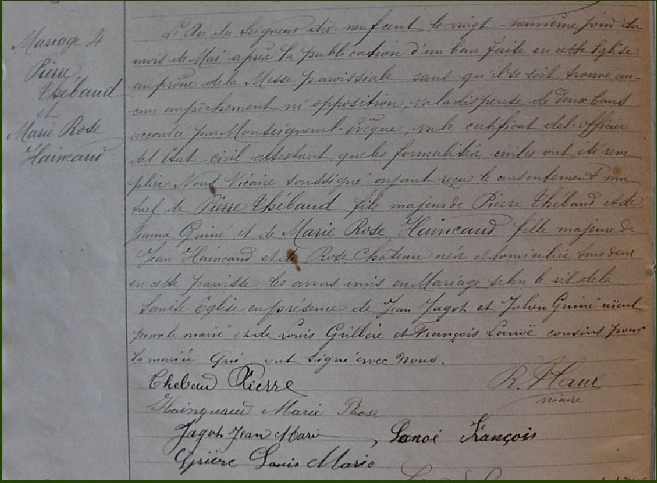 Mariage 4
Pierre
Thébaud
et
Marie Rose
Haincaud
L'An du Seigneur dix-neuf cent le vingt-neuvième jour du
mois de Mai après la publication d'un ban faite en cette Eglise
au prône de la Messe paroissiale sans qu'il se soit trouvé au-
cun empêchement ni opposition, vu la dispense de deux bans
accordée par Monseigneur l'Evêque, vu le certificat de l'officier
de l'Etat civil attestant que les formalités civiles ont été rem-
plies Nous Vicaire soussigné ayant reçu le consentement mu-
tuel de Pierre Thébaud fils majeur de Pierre Thébaud et de
Jeanne Guiné et de Marie Rose Haincaud fille majeure de
Jean Haincaud et de Rose Château nés et domiciliés tous deux
en cette paroisse les avons unis en Mariage selon le rit de la
Sainte Eglise en présence de Jean Jagot et Julien Guiné
pour le marié et de Louis et François cousins pour
la mariée qui ont signé avec nous.
Thebaud Pierre
R.
vicaire
Hainquaud Marie Rose
Jagot Jean Marie
Lanoë François
Louis Marie